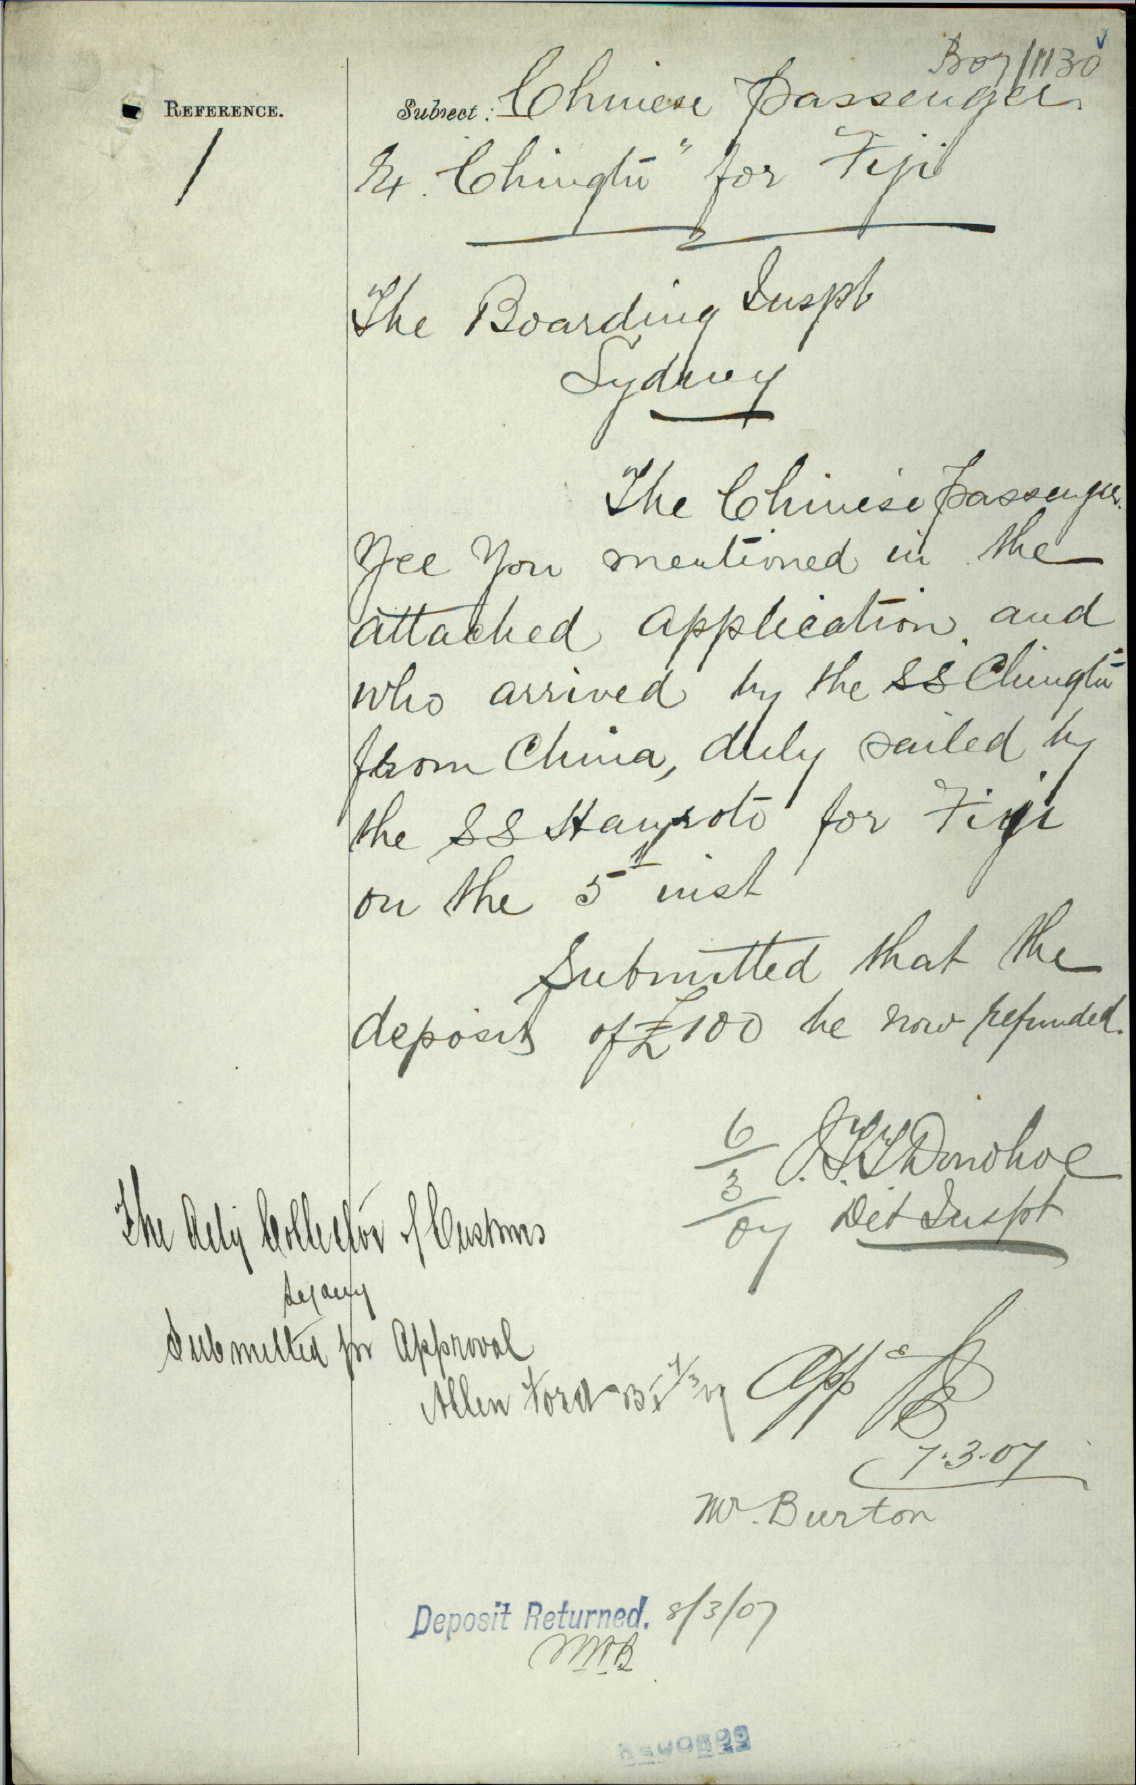 B07/1130
REFERENCE.
1
Subject: Chinese passenger
Ex. "Chingtu" for Fiji
The Boarding Inspt
Sydney
The Chinese passenger
Yee You mentioned in the
attached application and
who arrived by the SS Chingtu
from China, duly sailed by
the SS Hauroto for Fiji
on the 5th inst
Submitted that the
deposit of £100 be now refunded.
6/3/07 J.T.T. Donohoe
Det Inspt
The Actg Collector of Customs
Sydney
Submitted for Approval
Allen Ford B.I. 7/3/07
App
7.3.07
Mr. Burton
Deposit Returned. 8/3/07